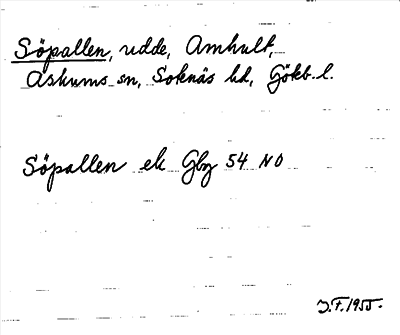 Söpallen, udde, Amhult,
Askums sn, Sotenäs hd, Götb. l.
Söpallen ek Gbg 54 NO
J.F. 1955.